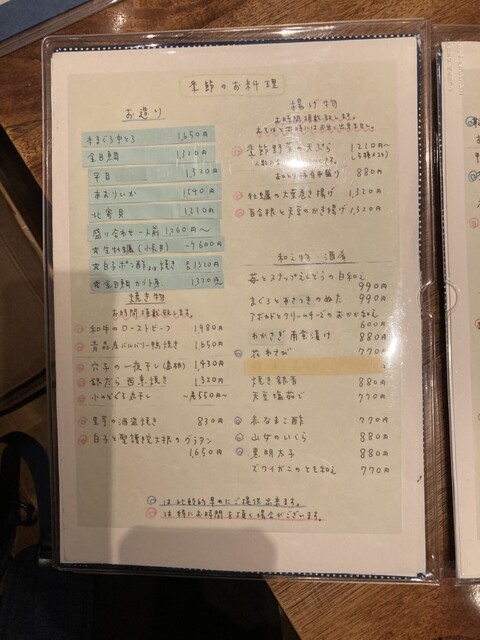 季節のお料理
お造り
本まぐろ中とろ 1,650円
金目鯛 1,320円
平目 1,320円
あおりいか 1,540円
北寄貝 1,210円
盛り合わせ一人前 1,760円〜
☆生牡蠣
600円
☆白子ポン酢 焼き 1,320円
☆金目鯛カブト煮 1,320円
焼き物
お時間頂戴致します。
和牛のローストビーフ 1,980円
青森産バルバリー鴨焼き 1,650円
穴子の一夜干し 1,430円
銀だら西京焼き 1,320円
小のどぐろ丸干し 550円〜
里芋の酒盗焼き 830円
白子と聖護院大根のグラタン
1,650円
揚げ物
お時間頂戴致します。
季節野菜の天ぷら 1,210円〜
880円
牡蠣の大葉巻き揚げ 1,320円
百合根と天豆のかき揚げ 1,320
和え物 酒肴
苺とスナップえんどうの白和え
990円
まぐろとあさつきのぬた 990円
アボカドとクリームチーズのおかか和え
600円
わかさぎ南蛮漬け 880円
花わさび 770円
焼き銀杏 880円
天豆塩茹で 770円
赤なまこ酢 770円
山女のいくら 880円
黒明太子 880円
ズワイガニのとも和え 770円
は比較的早めにご提供出来ます。
は特にお時間を頂く場合がございます。